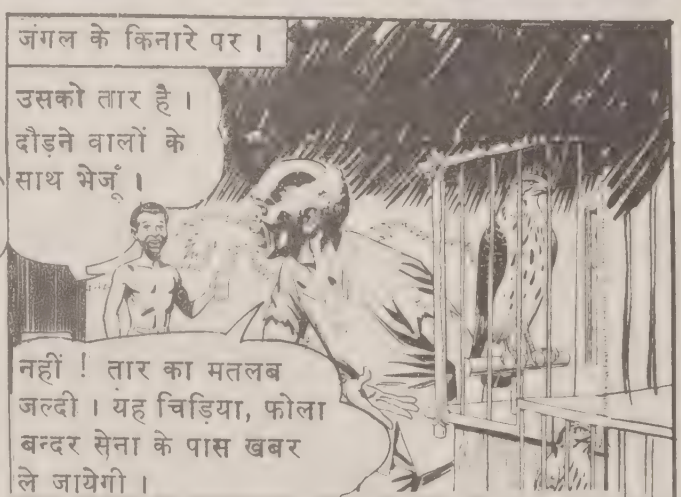 जंगल के किनारे पर ।
उसको तार है ।
दौड़ने वालों के
साथ भेजूँ ।
नहीं ! तार का मतलब
जल्दी । यह चिड़िया, फोला
बन्दर सेना के पास खबर
ले जायेगी ।